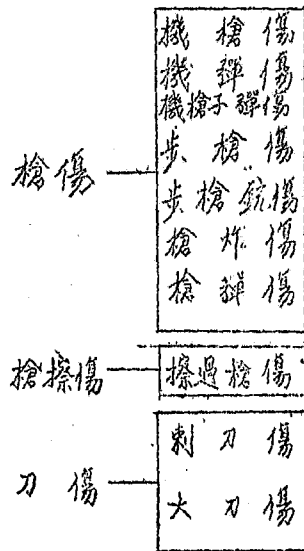 槍傷
機槍傷
機彈傷
機槍子彈傷
步槍傷
步槍銃傷
槍炸傷
槍彈傷
槍擦傷
擦過槍傷
刀傷
刺刀傷
大刀傷